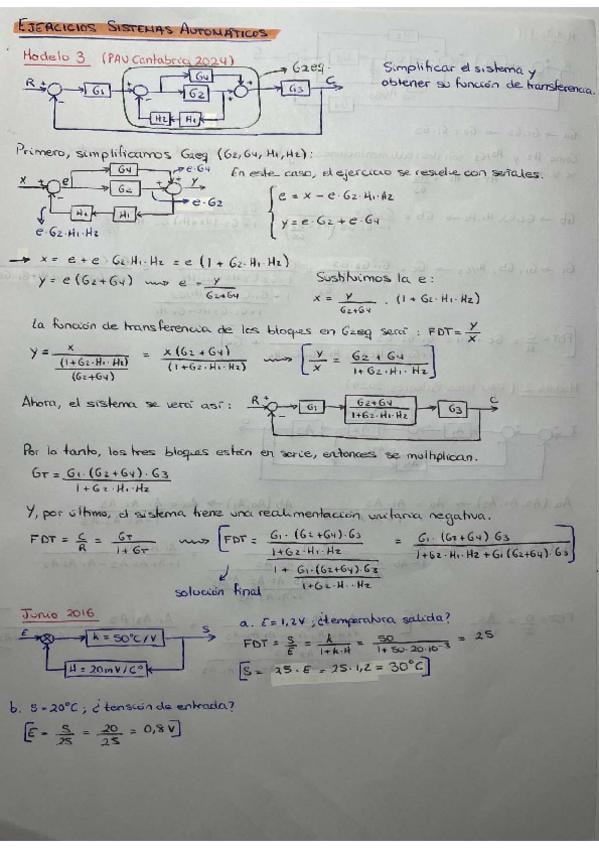 EJERCICIOS SISTEMAS AUTOMÁTICOS
Modelo 3 (PAU Cantabria 2024)
G2eq.
Simplificar el sistema y
obtener su función de transferencia.
R + - G1 + - G4 G2 + + G3 C
H2 H1
Primero, simplificamos G2eq (G2, G4, H1, H2):
En este caso, el ejercicio se resuelve con señales.
x + - e G4 G2 + + y
e·G4
e·G2
H2 H1
e·G2·H1·H2
e = x - e·G2·H1·H2
y = e·G2 + e·G4
→ x = e + e G2·H1·H2 = e (1 + G2·H1·H2)
y = e (G2+G4) ⟿ e = y/(G2+G4)
Sustituimos la e:
x = y/(G2+G4) · (1 + G2·H1·H2)
La función de transferencia de los bloques en G2eq será: FDT = y/x
y = x/((1+G2·H1·H2)/(G2+G4)) = x(G2+G4)/(1+G2·H1·H2) ⟿ [y/x = (G2+G4)/(1+G2·H1·H2)]
Ahora, el sistema se verá así: R + - G1 (G2+G4)/(1+G2·H1·H2) G3 C
Por lo tanto, los tres bloques están en serie, entonces se multiplican.
GT = G1·(G2+G4)·G3/(1+G2·H1·H2)
Y, por último, el sistema tiene una realimentación unitaria negativa.
FDT = C/R = GT/(1+GT) ⟿ [FDT = (G1·(G2+G4)·G3/(1+G2·H1·H2))/(1 + G1·(G2+G4)·G3/(1+G2·H1·H2)) = G1·(G2+G4) G3/(1+G2·H1·H2+G1(G2+G4)G3)]
solución final
Junio 2016
a. E=1,2V ; ¿temperatura salida?
E k = 50°C/V S
H = 20mV/C°
FDT = S/E = k/(1+k·H) = 50/(1+50·20·10⁻³) = 25
[S = 25·E = 25·1,2 = 30°C]
b. S=20°C ; ¿tensión de entrada?
[E = S/25 = 20/25 = 0,8V]